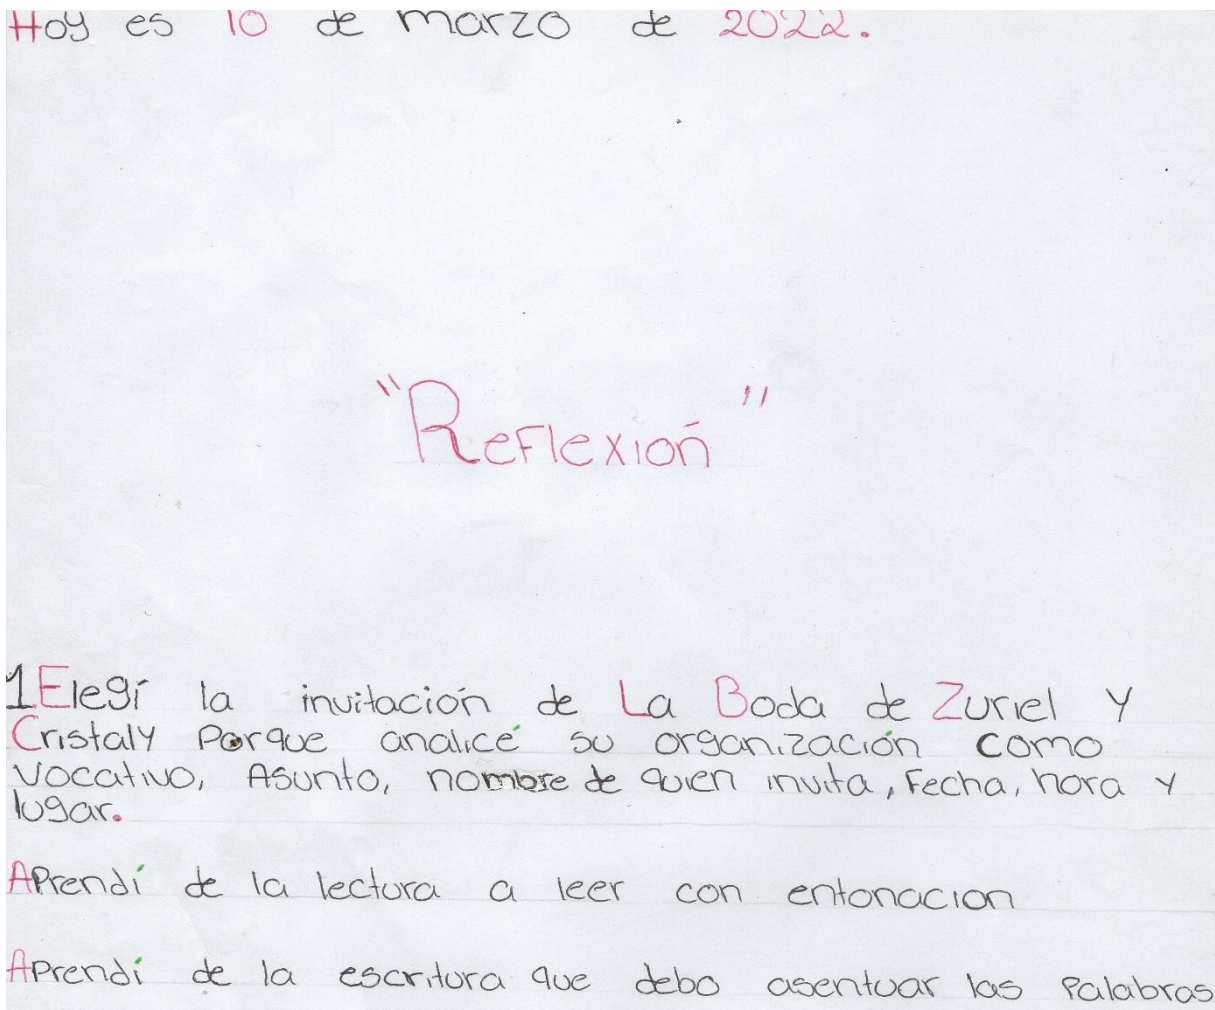 Hoy es 10 de marzo de 2022.
"Reflexión"
1 Elegí la invitación de La Boda de Zuriel y
Cristaly Porque analicé su organización como
vocativo, Asunto, nombre de quien invita, Fecha, hora y
lugar.
Aprendí de la lectura a leer con entonacion
Aprendí de la escritura que debo asentuar las palabras